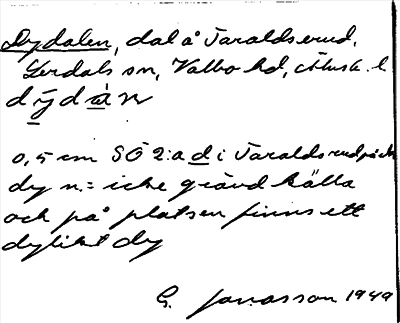 Dydalen, dal å Taraldserud,
Lerdals sn, Valbo hd, Älvsb. l.
dȳdàn
0,5 cm SÖ 2:a d i Taraldsrud på ek
dy n. = icke grävd källa
och på platsen finns ett
dylikt dy
G. Jonasson 1949